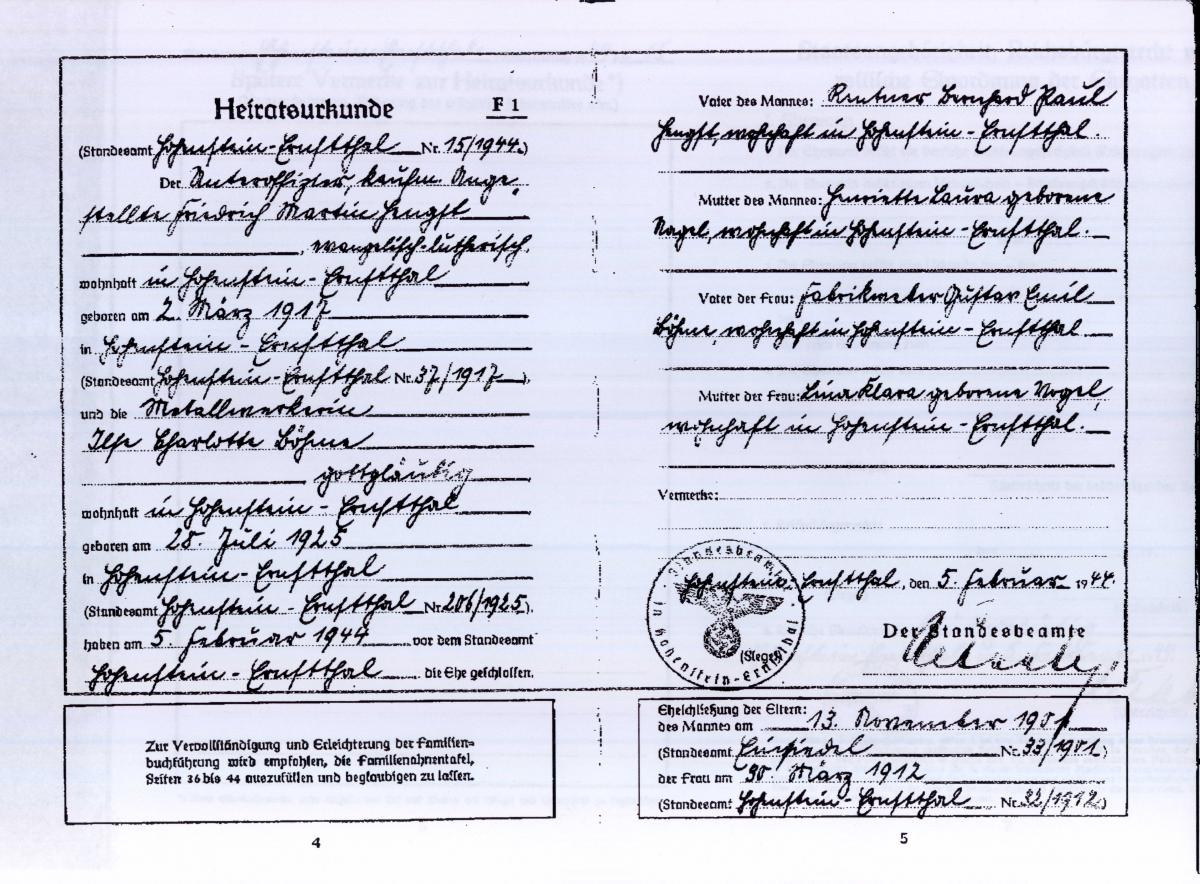 Heiratsurkunde F 1
(Standesamt Hohenstein-Ernstthal Nr. 15/1944.)
Der Unteroffizier, kaufm. Ange-
stellte Friedrich Martin Hengst
, evangelisch-lutherisch.
wohnhaft in Hohenstein-Ernstthal
geboren am 2. März 1917
in Hohenstein-Ernstthal
(Standesamt Hohenstein-Ernstthal Nr. 37/1917),
und die Metallwerkerin
Ilse Charlotte Böhme
, gottgläubig
wohnhaft in Hohenstein-Ernstthal
geboren am 28. Juli 1925
in Hohenstein-Ernstthal
(Standesamt Hohenstein-Ernstthal Nr. 206/1925),
haben am 5. Februar 1944 vor dem Standesamt
Hohenstein-Ernstthal die Ehe geschlossen.
Zur Vervollständigung und Erleichterung der Familien-
buchführung wird empfohlen, die Familienahnentafel,
Seiten 36 bis 44 auszufüllen und beglaubigen zu lassen.
4
Vater des Mannes: Rentner Bernhard Paul
Hengst, wohnhaft in Hohenstein-Ernstthal.
Mutter des Mannes: Henriette Laura geborene
Nagel, wohnhaft in Hohenstein-Ernstthal.
Vater der Frau: Fabrikweber Gustav Emil
Böhme, wohnhaft in Hohenstein-Ernstthal
Mutter der Frau: Lina Klara geborene Vogel,
wohnhaft in Hohenstein-Ernstthal.
Vermerke:
Hohenstein-Ernstthal, den 5. Februar 1944.
Der Standesbeamte
(Siegel)
in Hohenstein-Ernstthal
Eheschließung der Eltern:
des Mannes am 13. November 1901
(Standesamt Einsiedel Nr. 33/1901)
der Frau am 30. März 1912
(Standesamt Hohenstein-Ernstthal Nr. 32/1912)
5